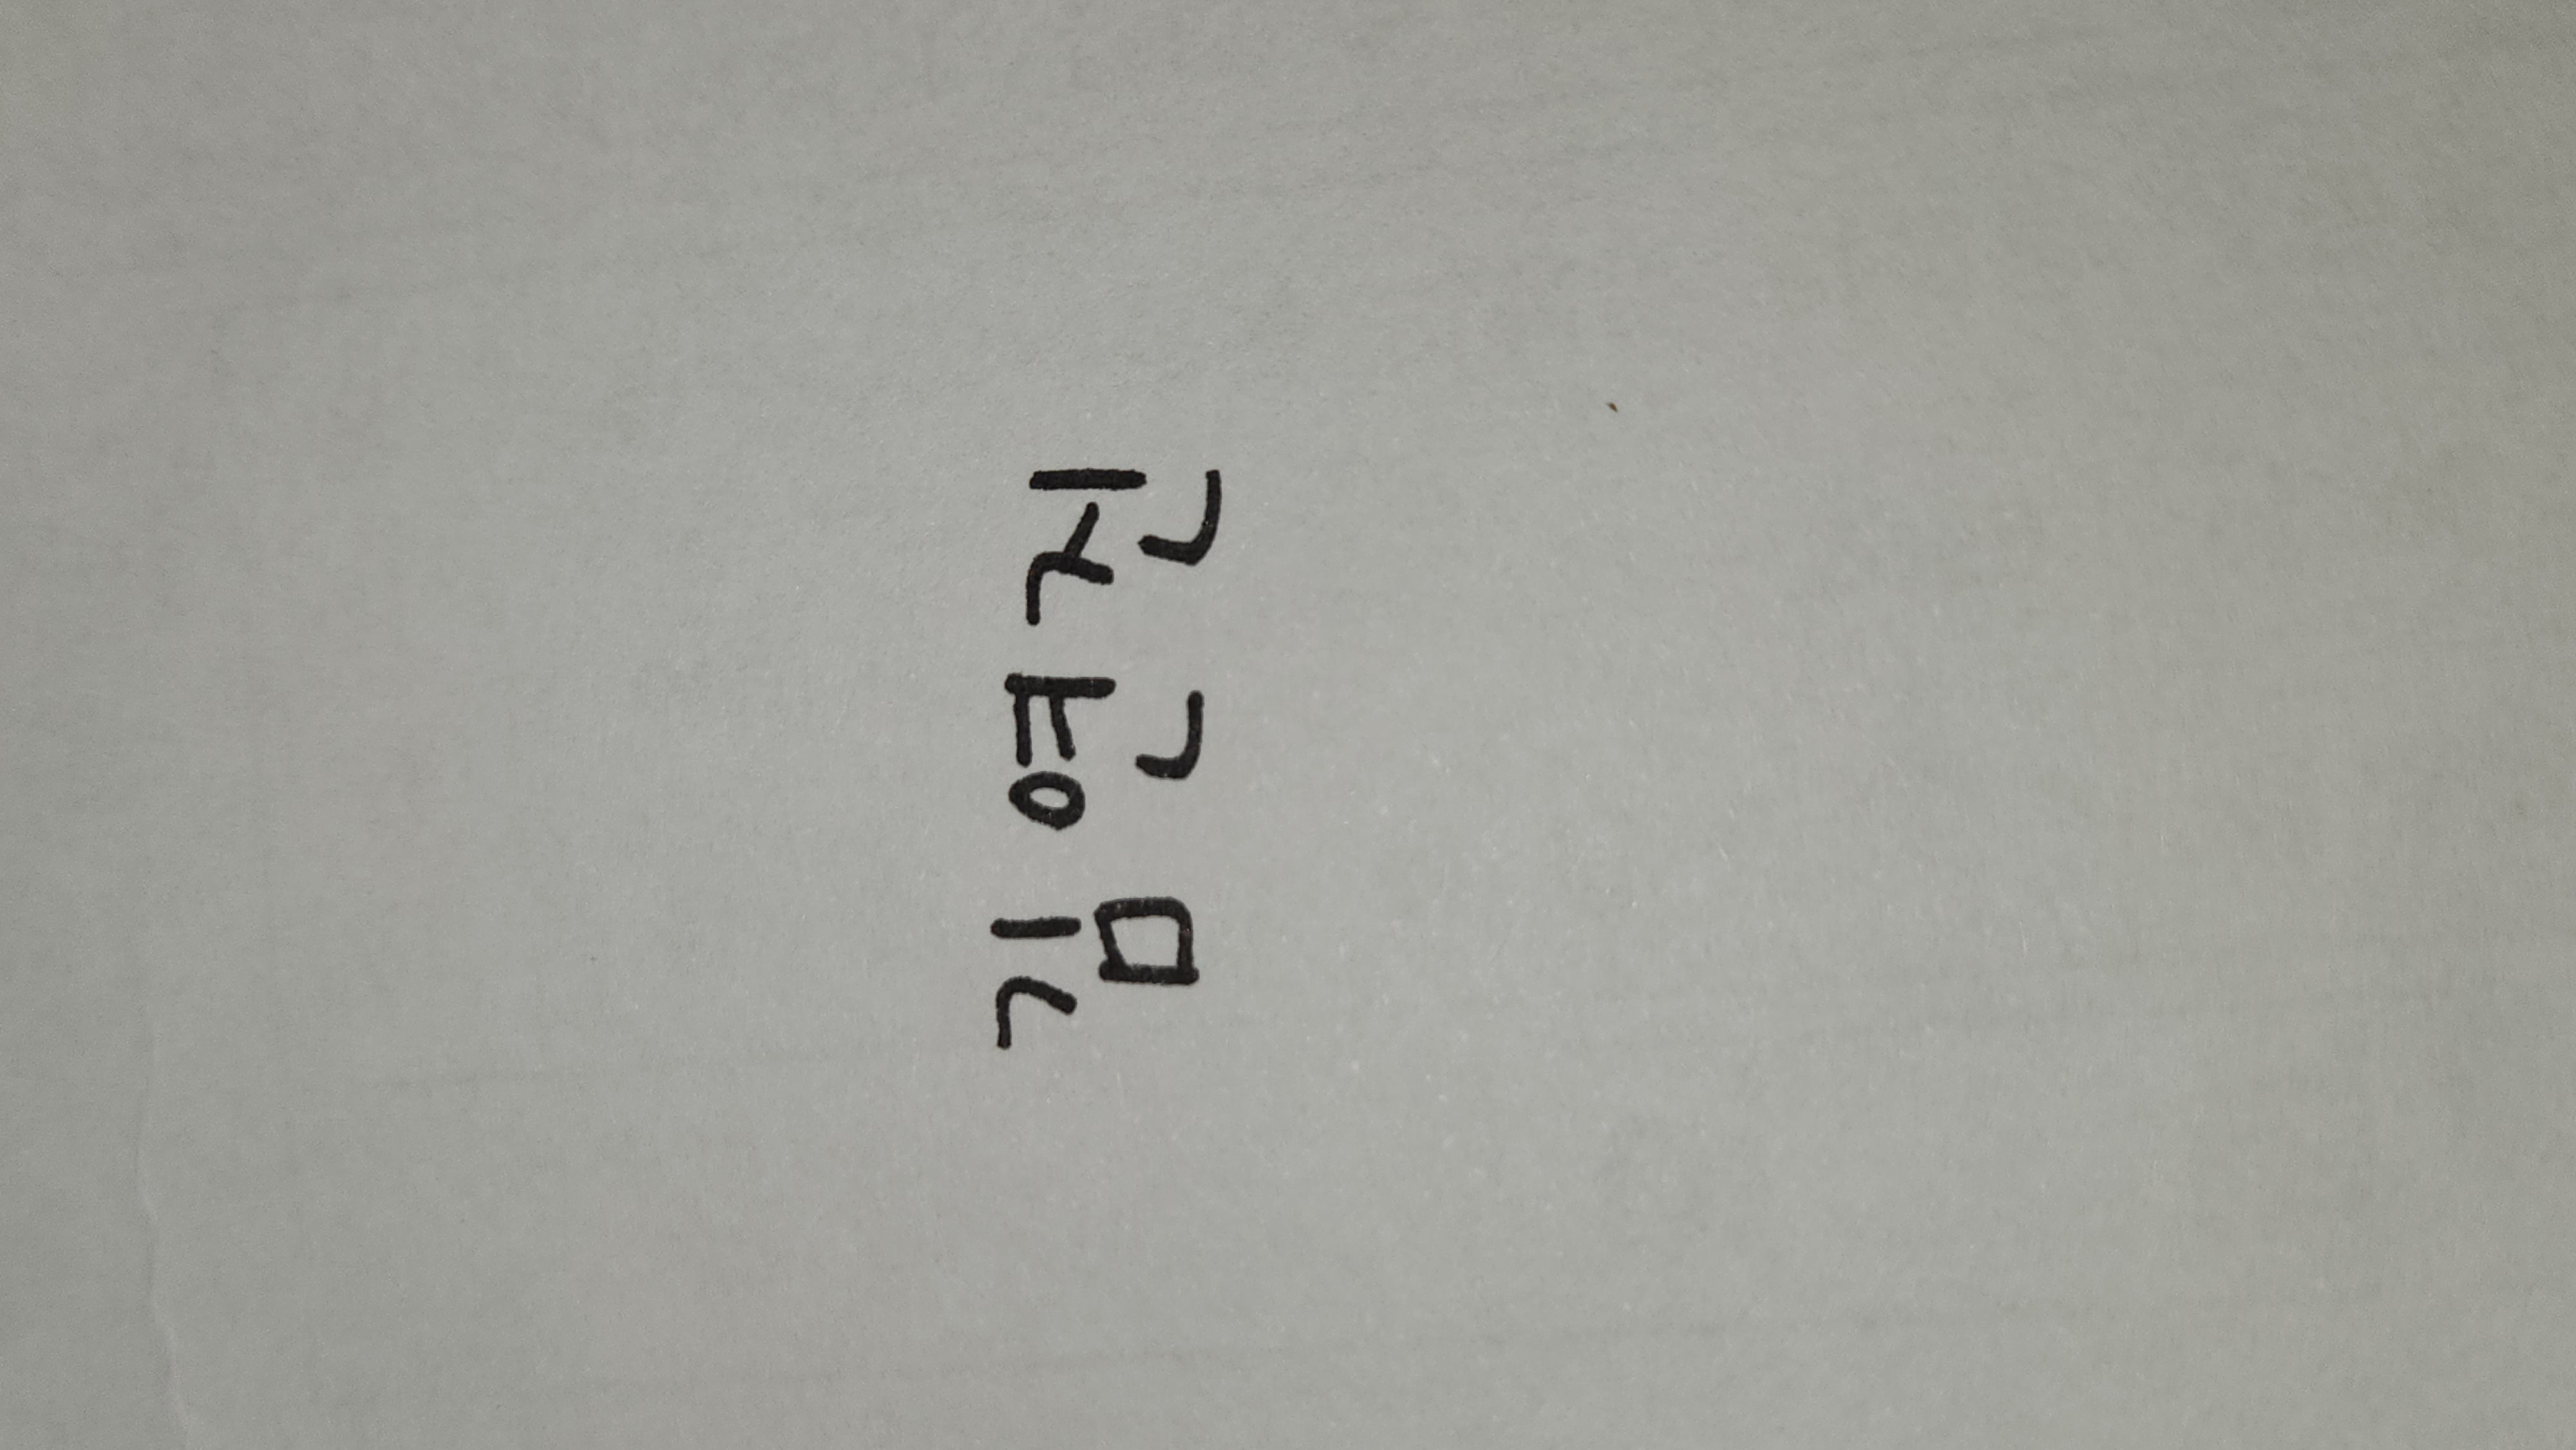 김연진